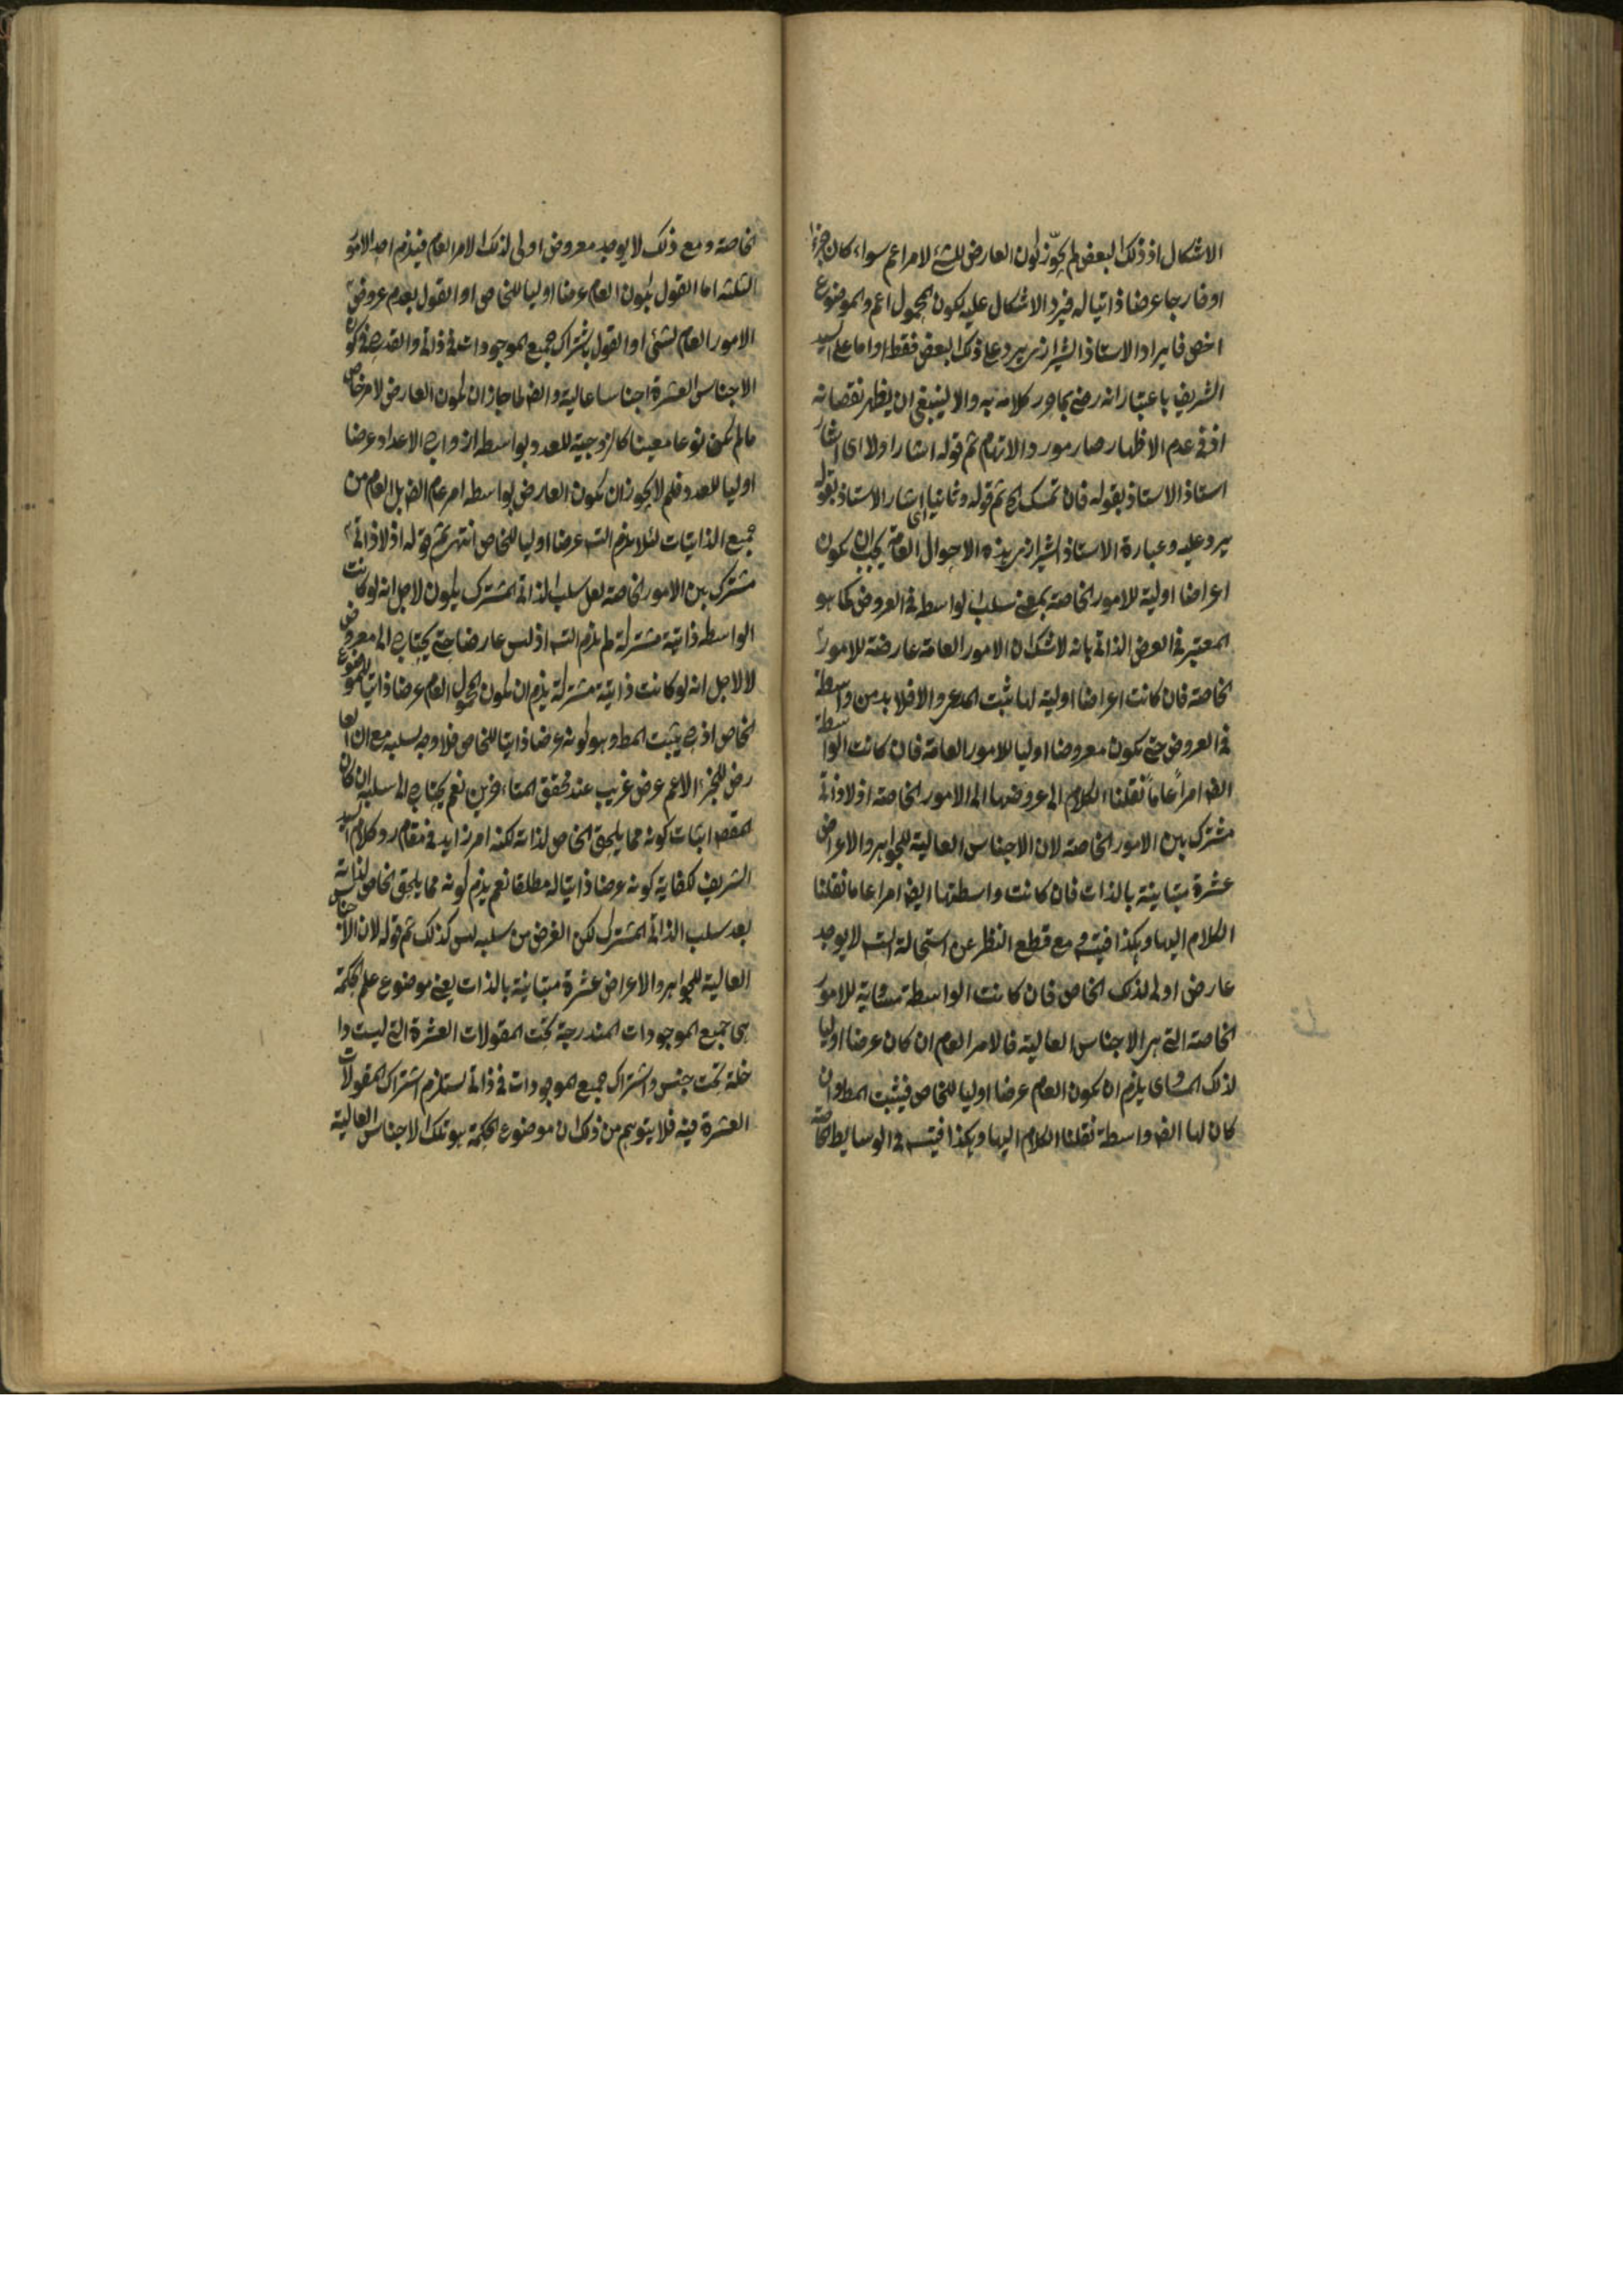 الاشكال اذ ذلك البعض لم يجوّز كون العارض للشئ لامر اعم سواء كان جزءا
او خارجا عرضا ذاتيا له فيرد الاشكال عليه بكون المحمول اعم والموضوع
اخص فايراد الاستاذ الشيرازى يرد على ذلك البعض فقط واما على السيد
الشريف باعتبار انه رضى بجاور كلامه به والا لينبغى ان يظهر نقصانه
اذ فى عدم الاظهار صار مورد الاتهام ثم قوله اشار اولا اى اشار
استاذ الاستاذ بقوله فان تمسك الخ ثم قوله وثانيا اى اشار الاستاذ بقوله
يرد عليه وعبارة الاستاذ الشيرازى هذه الاحوال العامة يجب ان يكون
اعراضا اولية للامور الخاصة بمعنى سلب الواسطة فى العروض كما هو
المعتبر فى العرض الذاتى بانه لا شك ان الامور العامة عارضة للامور
الخاصة فان كانت اعراضا اولية لها ثبت المدعى والا فلا بد من واسطة
فى العروض حتى يكون معروضا اوليا للامور العامة فان كانت الواسطة
ايضا امراً عاماً نقلنا الكلام الى عروضها الى الامور الخاصة اذ لا ذاتى
مشترك بين الامور الخاصة لان الاجناس العالية للجواهر والاعراض
عشرة متباينة بالذات فان كانت واسطتها ايضا امرا عاما نقلنا
الكلام اليها وهكذا فيتس ومع قطع النظر عن استحالة التس لا يوجد
عارض اولى لذلك الخاص فان كانت الواسطة مساوية للامور
الخاصة التى هى الاجناس العالية فالامر العام ان كان عرضا اوليا
لذلك المساوى يلزم ان يكون العام عرضا اوليا للخاص فيثبت المط وان
كان لها ايضا واسطة نقلنا الكلام اليها وهكذا فيتس فى الوسايط الخاصة
الخاصة ومع ذلك لا يوجد معروض اولى لذلك الامر العام فيلزم احد الامور
الثلثة اما القول بكون العام عرضا اوليا للخاص او القول بعدم عروض
الامور العام لشئ او القول باشتراك جميع الموجودات فى ذاتى والقدح فى كون
الاجناس العشرة اجناسا عالية وايضا لما جاز ان يكون العارض لامر خاص
ما لم يكن نوعا معينا كالزوجية للعدد بواسطة ازواج الاعداد عرضا
اوليا للعدد فلم لا يجوز ان يكون العارض بواسطة امر عام ايضا بل العام من
جميع الذاتيات لئلا يلزم التس عرضا اوليا للخاص انتهى ثم قوله اذ لا ذاتى
مشترك بين الامور الخاصة لعل سلب الذاتى المشترك يكون لاجل انه لو كانت
الواسطة ذاتية مشتركة لم يلزم التس اذ ليس عارضا حتى يحتاج الى معروض
لا لاجل انه لو كانت ذاتية مشتركة يلزم ان يكون المحمول العام عرضا ذاتيا للموضوع
الخاص اذ ح يثبت المط وهو كونه عرضا ذاتيا للخاص فلا وجه لسلبه مع ان العا
رض للجزء الاعم عرض غريب عند محقق المتاخرين نعم يحتاج الى سلبه ان كان
المقصود اثبات كونه مما يلحق الخاص لذاته لكنه امر زايد فى مقام رد كلام السيد
الشريف لكفاية كونه عرضا ذاتيا له مطلقا نعم يلزم كونه مما يلحق الخاص لذاته
بعد سلب الذاتى المشترك لكن الغرض من سلبه ليس كذلك ثم قوله لان الاجناس
العالية للجواهر والاعراض عشرة متباينة بالذات يعنى موضوع علم الحكمة
هى جميع الموجودات المندرجة تحت المقولات العشرة التى ليست دا
خلة تحت جنس واشتراك جميع الموجودات فى ذاتى يستلزم اشتراك المقولات
العشرة فيه فلا يتوهم من ذلك ان موضوع الحكمة هو تلك الاجناس العالية